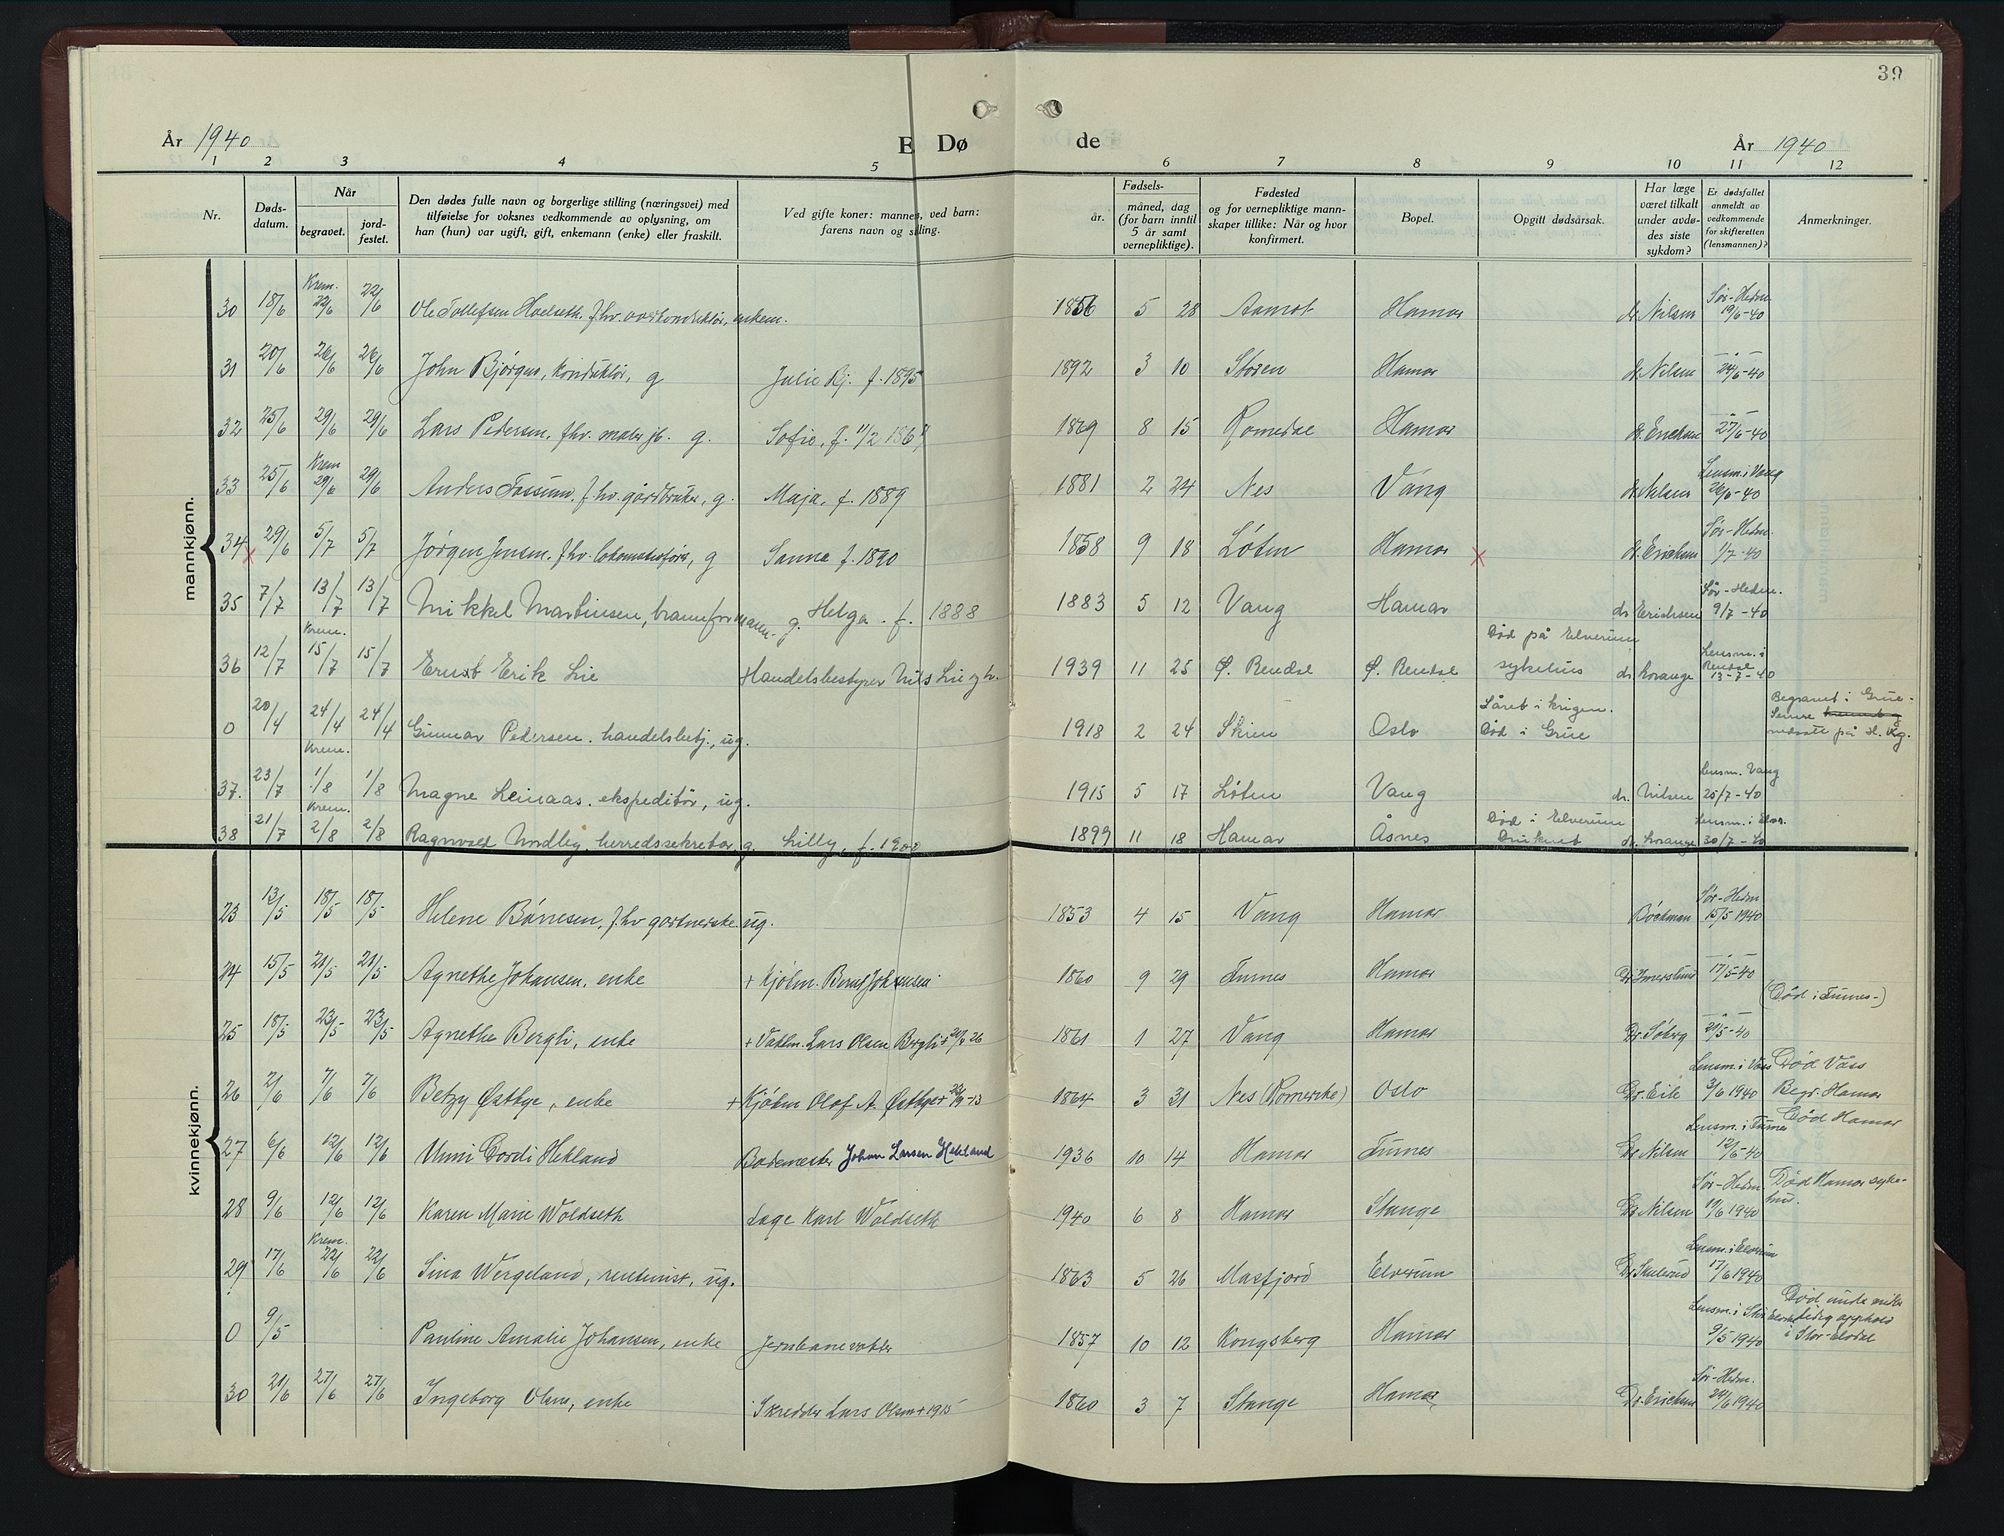 39
År 1940
E. Dø de
År 1940
1 2 3 4 5 6 7 8 9 10 11 12
Nr.
Døds-
datum.
Når
begravet.
jord-
festet.
Den dødes fulle navn og borgerlige stilling (næringsvei) med
tilføielse for voksnes vedkommende av oplysning, om
han (hun) var ugift, gift, enkemann (enke) eller fraskilt.
Ved gifte koner: mannens, ved barn:
farens navn og stilling.
år.
Fødsels-
måned, dag
(for barn inntil
5 år samt
vernepliktige).
Fødested
og for vernepliktige mann-
skaper tillike: Når og hvor
konfirmert.
Bopel.
Opgitt dødsårsak.
Har læge
været tilkalt
under avdø-
des siste
sykdom?
Er dødsfallet
anmeldt av
vedkommende
for skifteretten
(lensmannen)?
Anmerkninger.
mankjønn.
Krem. Sør-Hedm
30 18/6 22/6 22/6 Ole Tollefsen Hoelseth, fhv. overkonduktør, enkem. 1856 5 28 Aamot Hamar dr. Nilsen 19/6-40
31 20/6 26/6 26/6 John Bjørgen, konduktør, g Julie Bj. f. 1895 1892 3 10 Støren Hamar dr. Nilsen 24/6-40
32 25/6 29/6 29/6 Lars Pedersen, fhv. g. Sofie, f. 11/2 8 15 Romedal Hamar dr. Erichsen 27/6-40
Krem Lensm. i Vang
33 25/6 29/6 29/6 Anders Fossum, fhv. gårdbruker, g. Maja, f. 1889 1881 2 24 Nes Vang dr. Nilsen 26/6-40
Sør-Hedm.
34 x 29/6 5/7 5/7 Jørgen Jensen, fhv. lokomotivfører, g Sanna f. 1890 1858 9 18 Løten Hamar x dr. Erichsen 1/7-40
Sør-Hedm.
35 7/7 13/7 13/7 Mikkel Martinsen, banneformann. g. Helga. f. 1888 1883 5 12 Vang Hamar dr. Erichsen 9/7-40
Krem. Død på Elverum Lensm. i
36 12/7 15/7 15/7 Ernst Erik Lie Handelsbestyrer Nils Lie og h. 1939 11 25 Ø. Rendal Ø. Rendal sykehus dr. Lorange Rendal 13-7-40
Såret i krigen. Begravet i Grue.
0 20/4 24/4 24/4 Gunnar Pedersen, handelsbetj., ug. 1918 2 24 Skien Oslo Død i Grue Senere
nedsatt på H. kg.
Krem. Lensm. Vang
37. 23/7 1/8 1/8 Magne Leinaas, ekspeditør, ug. 1915 5 17 Løten Vang dr. Nilsen 25/7-40
Krem. Død i Elverum Lensm. i Elv.
38 21/7 2/8 2/8 Ragnvald Nordlig, herredssekretær, g. Lilly, f. 1902 1899 11 18 Hamar Åsnes Druknet dr. Lorange 30/7-40
kvinnekjønn.
Sør-Hedm
23 13/5 18/5 18/5 Helene Bönesen, fhv gartnerske ug. 1853 4 15 Vang Hamar Böckman 15/5 1940
24 15/5 21/5 21/5 Agnethe Johansen, enke + Kjøbm. Bernt Johansen 1860 9 29 Furnes Hamar Dr. Imerslund 17/5-40
(Død i Furnes-)
25 18/5 23/5 23/5 Agnethe Bergli, enke + Lars Olsen Bergli + 26 1861 1 27 Vang Hamar Dr. Soberg 21/5-40
Lensm. i Voss Død Voss
26 2/6 7/6 7/6 Betzy Østbye, enke + Kjøbm Olof A. Østbye + 22/9-13 1864 3 31 Nes (Romerike) Oslo Dr. Eik 3/6 1940 Begr. Hamar
Lensm. i Furnes Død Hamar
27 6/6 12/6 12/6 Unni Gordi Hekland Bademester Johan Larsen Hekland 1936 10 14 Hamar Furnes Dr. Nilsen 12/6-40
Sør-Hedm Død Hamar syke-
hus.
28 9/6 12/6 12/6 Karen Marie Woldseth Lage Karl Woldseth 1940 6 8 Hamar Stange Dr. Nilsen 19/6 1940
Krem. Lensm. i Elverum
29 17/6 22/6 22/6 Sina Wergeland, rentenist, ug. 1863 5 26 Masfjord Elverum Dr. Skulerud 17/6 1940
Lensm. i Stor-Elvdal Død under midler-
tidig opphold
i Stor-Elvdal
0 9/5 Pauline Amalie Johansen, enke Jernbanevokter 1857 10 12 Kongsberg Hamar 9/5 1940
Sør-Hedm.
30 21/6 27/6 27/6 Ingeborg Olsen, enke Skredder Lars Olsen + 1915 1860 3 7 Stange Hamar Dr. Erichsen 24/6 1940